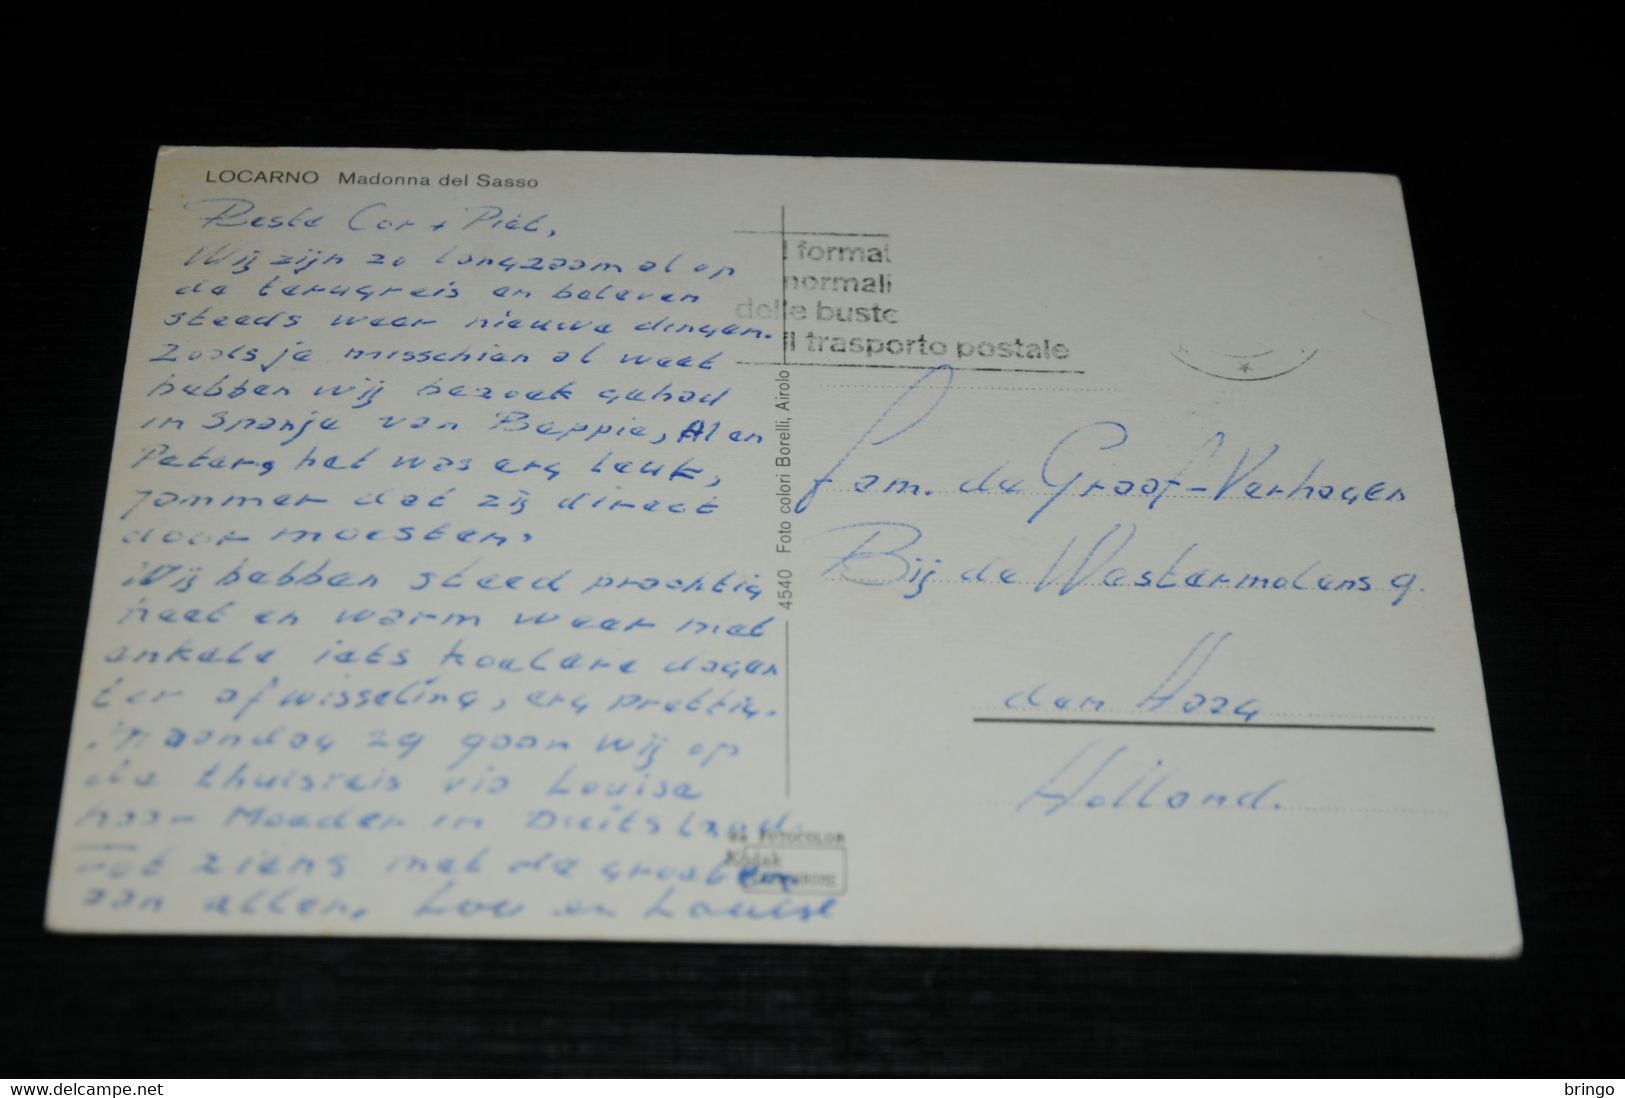 LOCARNO Madonna del Sasso
Beste Cor + Piet,
Wij zijn zo langzaam al op
de terugreis en beleven
steeds weer nieuwe dingen.
Zoals je misschien al weet
hebben wij bezoek gehad
in Spanje van Beppie, Al en
Peter, het was erg leuk,
jammer dat zij direct
door moesten.
Wij hebben steed prachtig
heet en warm weer met
enkele iets koelere dagen
ter afwisseling, erg prettig.
Maandag 29 gaan wij op
de thuisreis via Louise
haar Moeder in Duitsland.
Tot ziens met de groeten
aan allen, Lou en Louise
I format
normali
delle buste
il trasporto postale
4540 Foto colori Borelli, Airolo
FOTOCOLOR
Kodak
fam. de Graaf-Verhagen
Bij de Westermolens 9.
den Haag
Holland.
bringo
https://www.delcampe.net